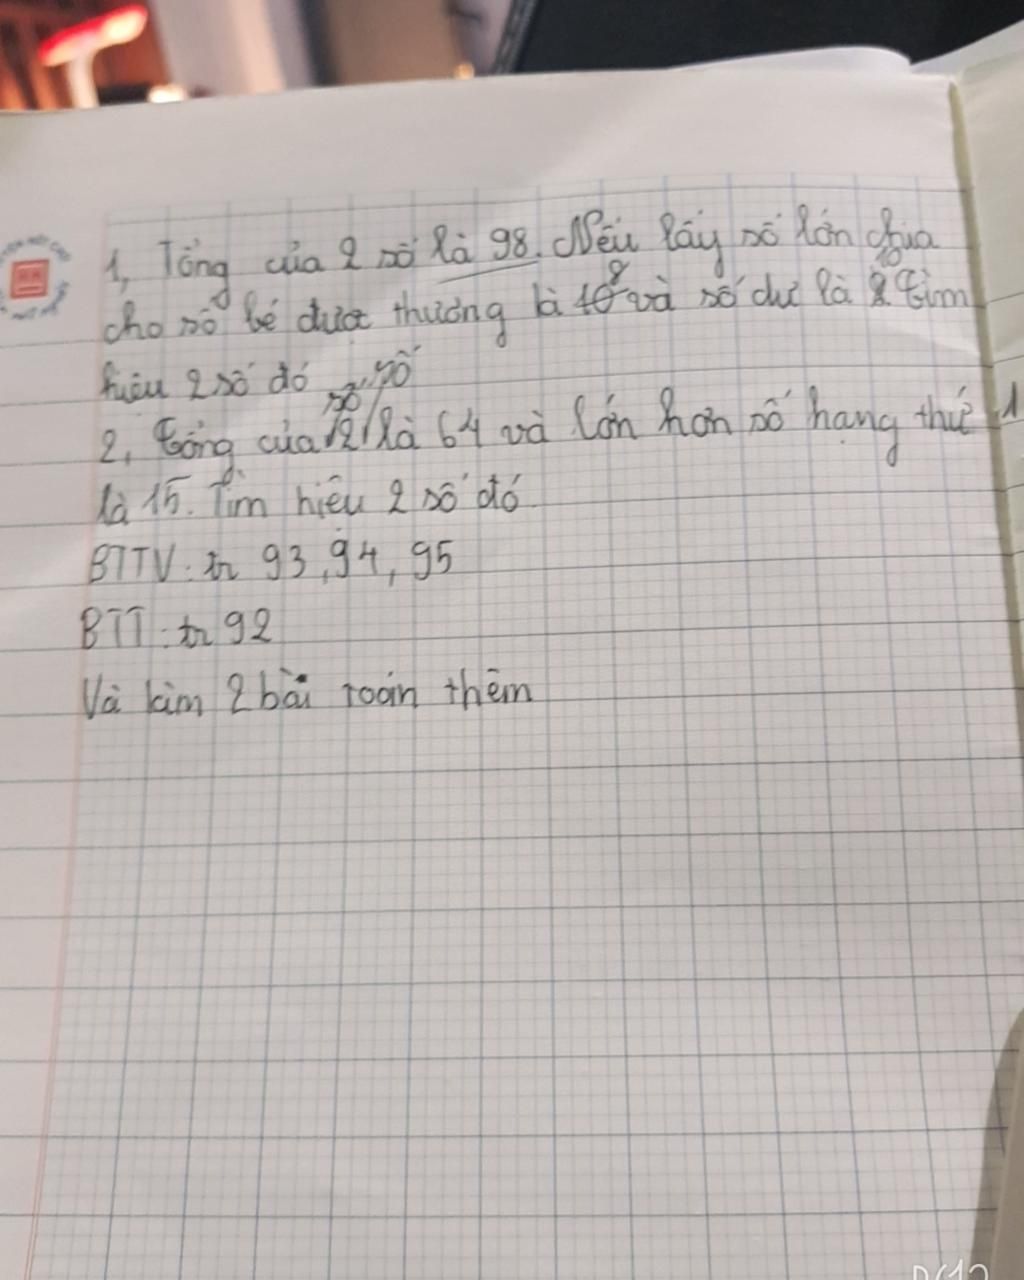 1, Tổng của 2 số là 98. Nếu lấy số lớn chia
cho số bé được thương là 10 8 và số dư là 8 Tìm
hiệu 2 số đó
2, Tổng của 2 số là 64 và lớn hơn số hạng thứ 1
là 15. Tìm hiệu 2 số đó
BTTV: tr 93, 94, 95
BTT: tr 92
Và làm 2 bài toán thêm